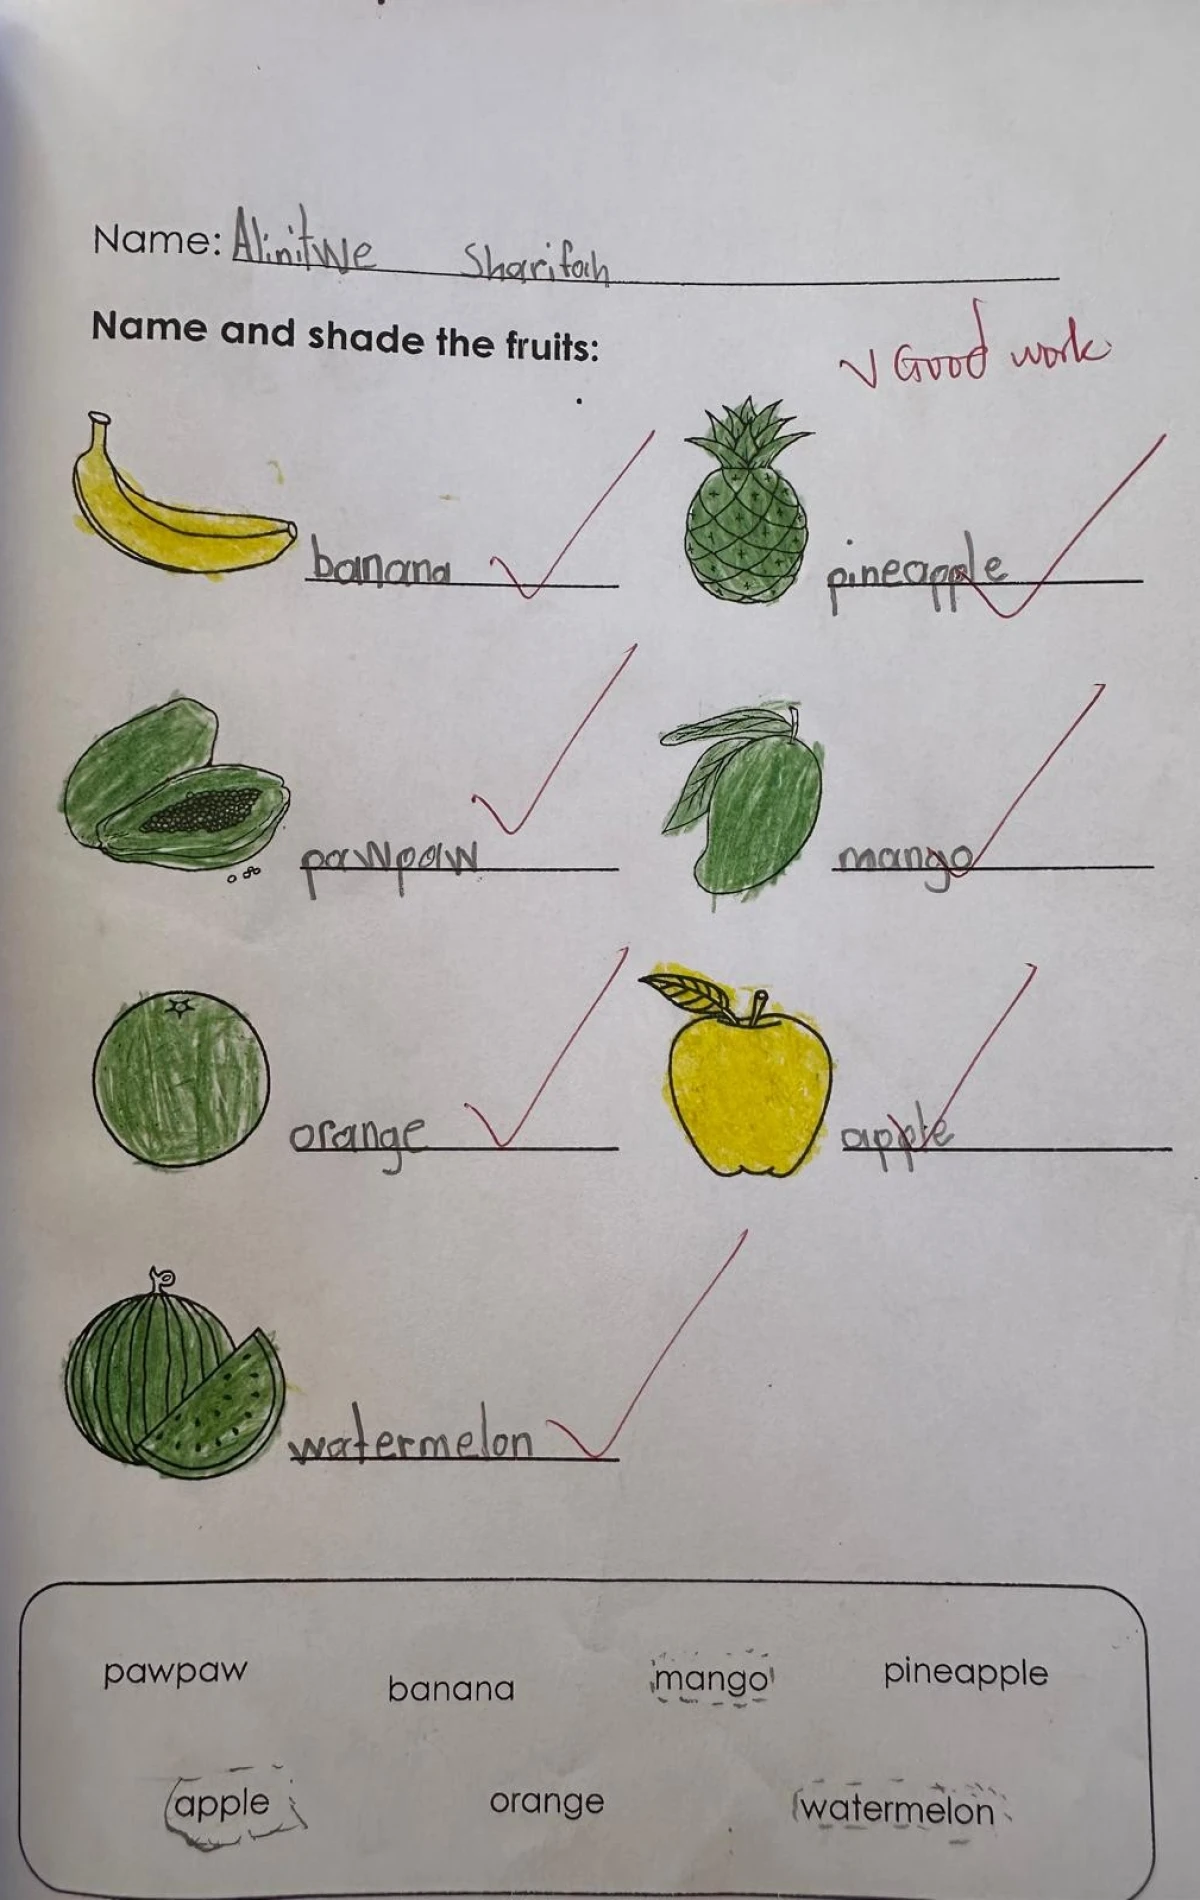 Name: Alinitwe Sharifah
Name and shade the fruits:
Good work
banana
pineapple
pawpaw
mango
orange
apple
watermelon
pawpaw banana mango pineapple
apple orange watermelon